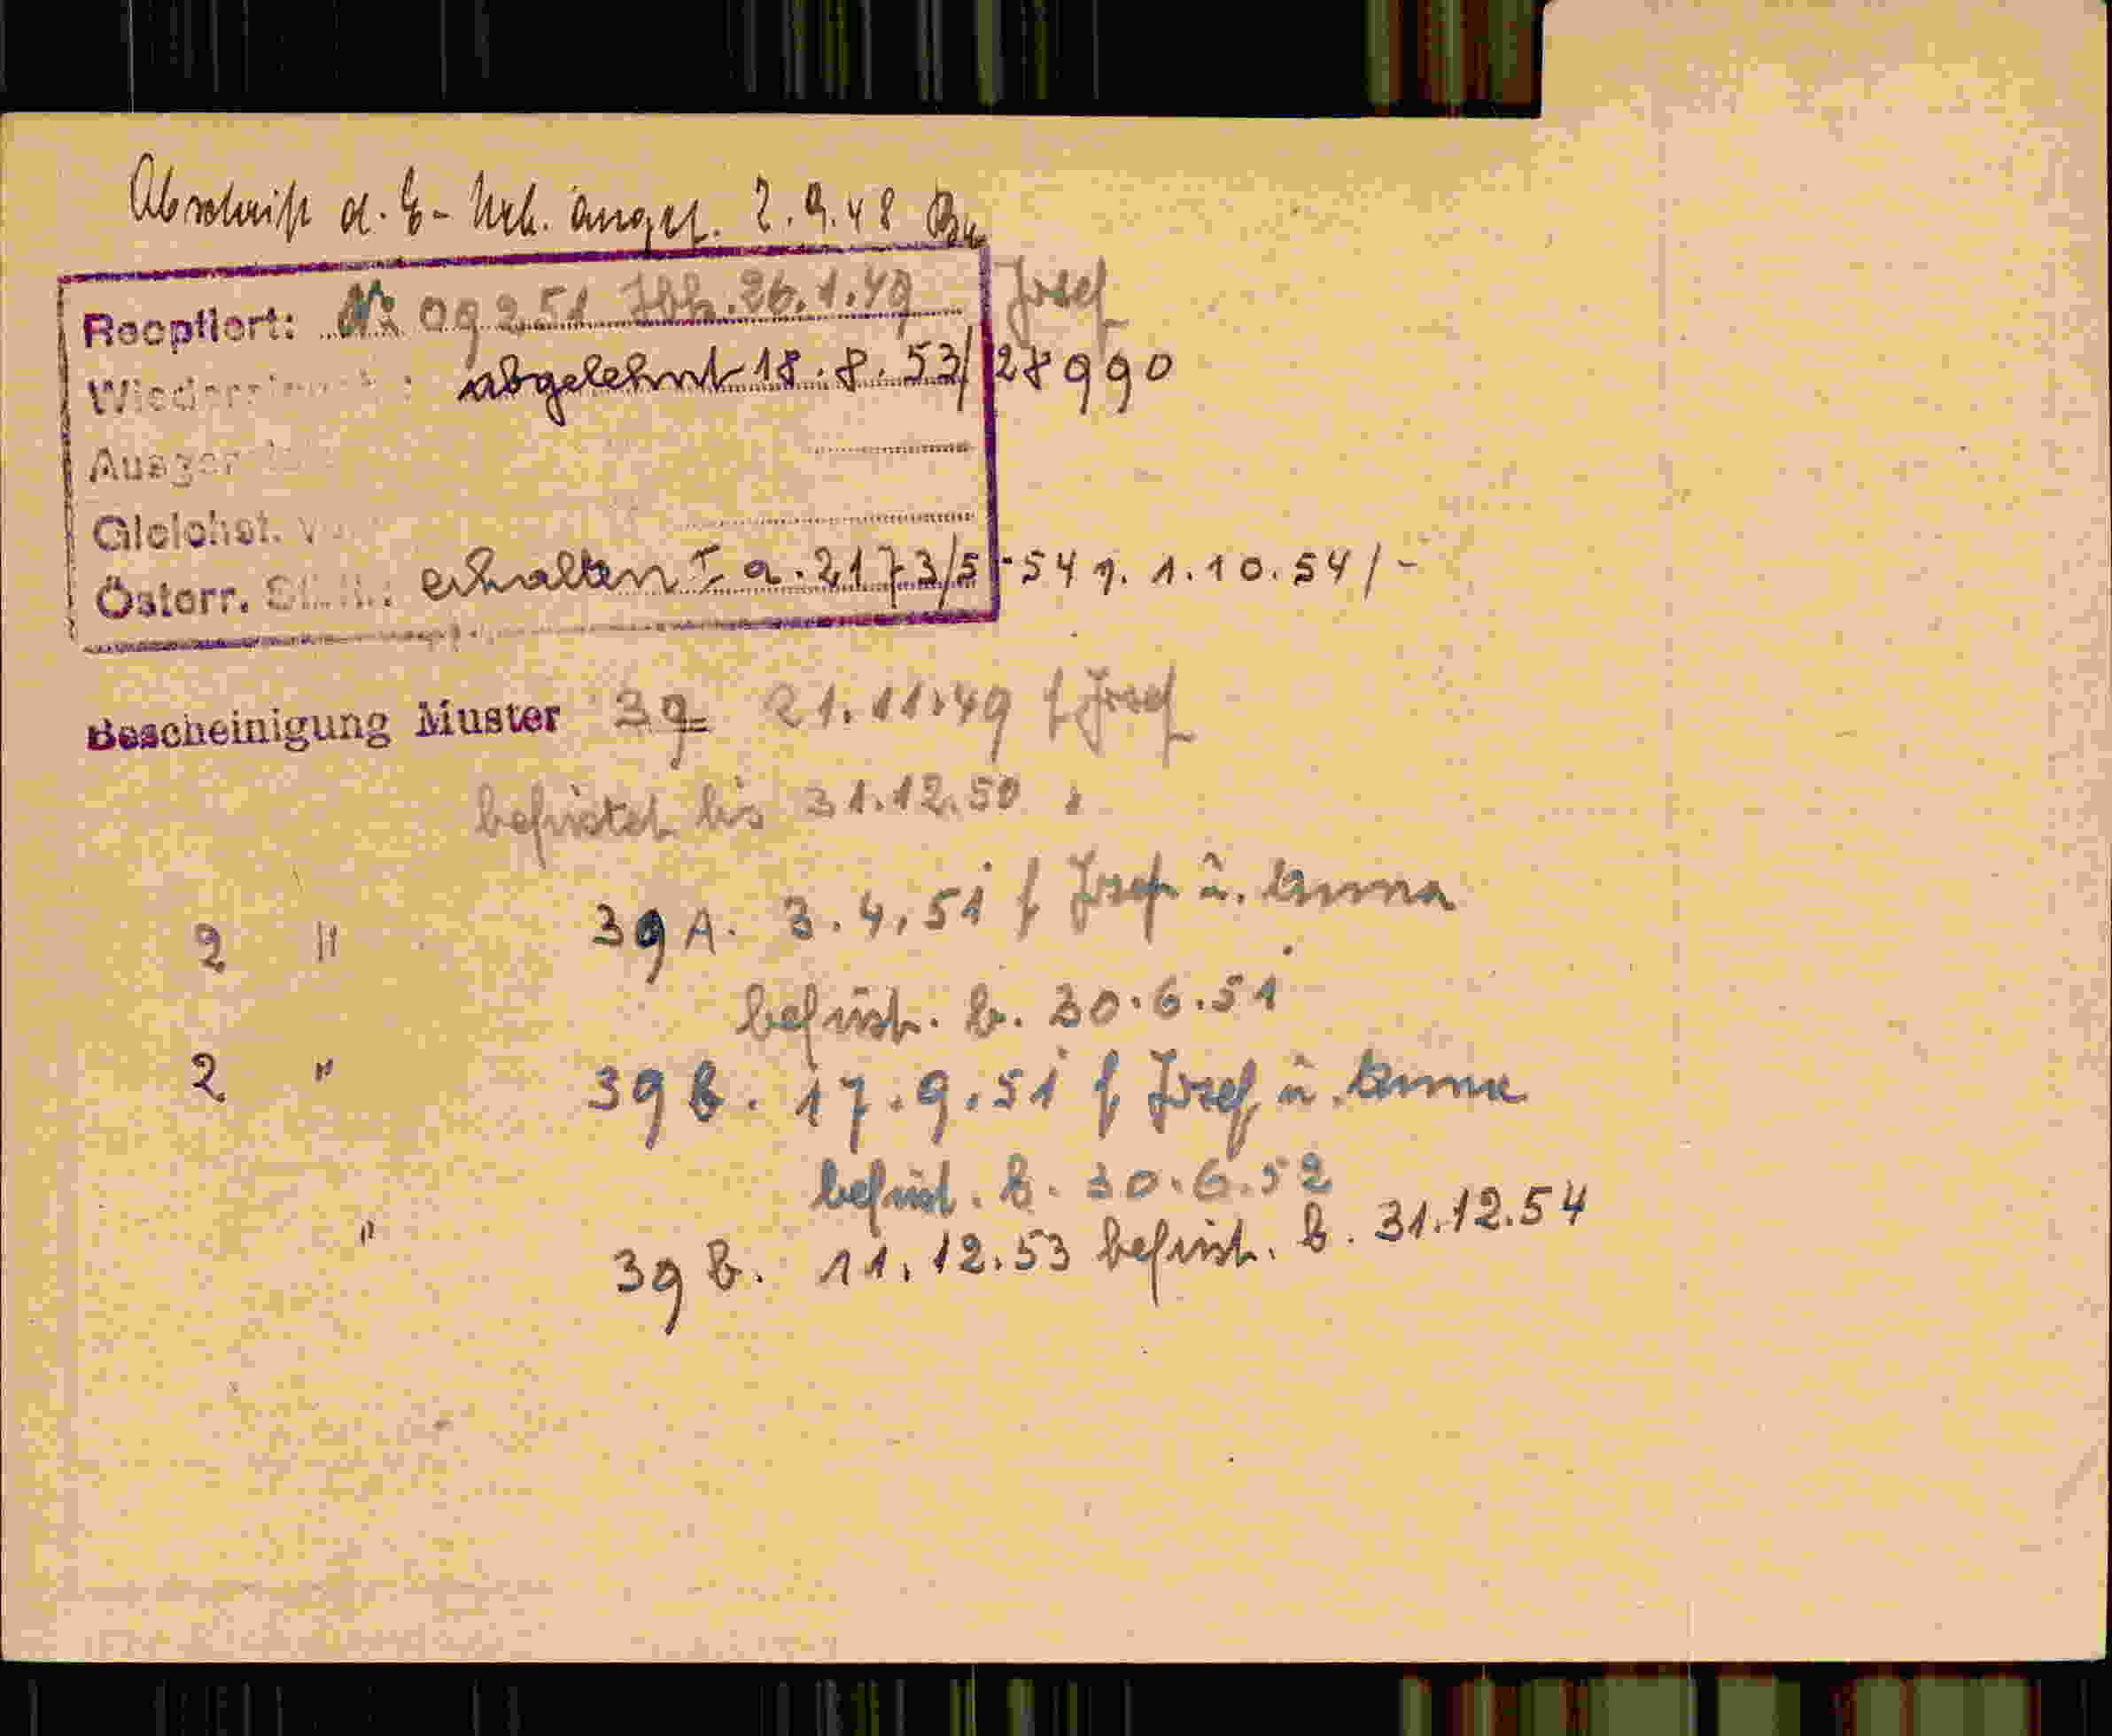 Abschrift d. E- Urk. angef. 2.9.48
Rooptiert: № 09251 Ibk. 26.1.49 Josef
abgelehnt 18.8.53/28990
Gleichst. v.
Österr. erhalten I a. 2173/5-54 v. 1.10.54/-
Bescheinigung Muster 39 21.11.49 f Josef
befristet bis 31.12.50
2 " 39 A. 3.4.51 f Josef u. Anna
befrist. b. 30.6.51
2 " 39 b. 17.9.51 f Josef u. Anna
befrist. b. 30.6.52
" 39 b. 11.12.53 befrist. b. 31.12.54